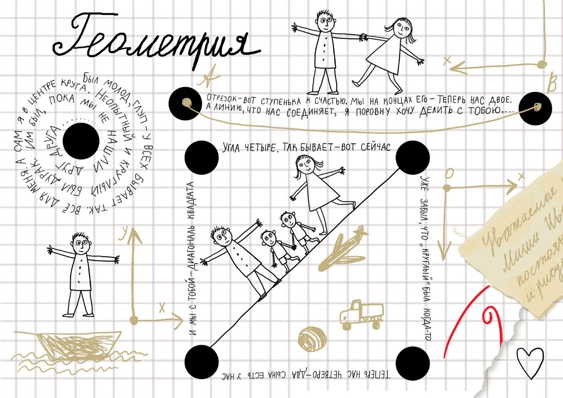 Геометрия
БЫЛ МОЛОД, ГЛУП-У ВСЕХ БЫВАЕТ ТАК. ВСЁ ДЛЯ МЕНЯ, А САМ Я В ЦЕНТРЕ КРУГА. НЕОПЫТНЫЙ И КРУГЛЫЙ БЫЛ ДУРАК. ИМ БЫЛ, ПОКА МЫ НЕ НАШЛИ ДРУГ ДРУГА........
A
B
x
ОТРЕЗОК-ВОТ СТУПЕНЬКА К СЧАСТЬЮ, МЫ НА КОНЦАХ ЕГО-ТЕПЕРЬ НАС ДВОЕ.
А ЛИНИЮ, ЧТО НАС СОЕДИНЯЕТ, Я ПОРОВНУ ХОЧУ ДЕЛИТЬ С ТОБОЮ....
УГЛА ЧЕТЫРЕ, ТАК БЫВАЕТ-ВОТ СЕЙЧАС
УЖЕ ЗАБЫЛ, ЧТО „КРУГЛЫЙ" БЫЛ КОГДА-ТО
ТЕПЕРЬ НАС ЧЕТВЕРО-ДВА СЫНА ЕСТЬ У НАС
И МЫ С ТОБОЙ-ДИАГОНАЛЬ КВАДРАТА
O
x
y
x
Уважаемые